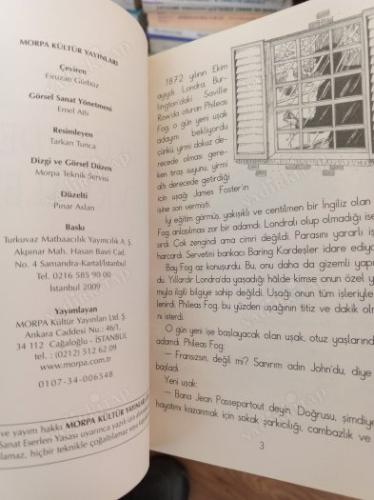 MORPA KÜLTÜR YAYINLARI
Çeviren
Firuzan Gürbüz
Görsel Sanat Yönetmeni
Emel Atlı
Resimleyen
Tarkan Tunca
Dizgi ve Görsel Düzen
Morpa Teknik Servisi
Düzelti
Pınar Aslan
Baskı
Turkuvaz Matbaacılık Yayıncılık A. Ş.
Akpınar Mah. Hasan Basri Cad.
No. 4 Samandıra-Kartal/İstanbul
Tel. 0216 585 90 00
İstanbul 2009
Yayımlayan
MORPA Kültür Yayınları Ltd. Ş.
Ankara Caddesi Nu.: 46/1,
34 112 Cağaloğlu - İSTANBUL
Tel.: (0212) 512 62 09
www.morpa.com.tr
0107-34-006548
ve yayım hakkı MORPA KÜLTÜR YAYINLARI
Sanat Eserleri Yasası uyarınca
lamaz, hiçbir teknikle çoğaltılamaz
1872 yılının Ekim
ayıydı. Londra, Bur-
lington'daki Saville
Row'da oturan Phileas
Fog, o gün yeni uşak
adayını bekliyordu
çünkü yirmi dokuz de-
recede olması gere-
ken tıraş suyunu, yirmi
altı derecede getirdiği
için uşağı James Foster'ın
işine son vermişti.
İyi eğitim görmüş, yakışıklı ve centilmen bir İngiliz olan
Fog, anlaşılması zor bir adamdı. Londralı olup olmadığı ise
sırdı. Çok zengindi ama cimri değildi. Parasını yararlı iş
harcardı. Servetini bankacı Baring Kardeşler idare ediyo
Bay Fog az konuşurdu. Bu, onu daha da gizemli yapı
du. Yıllardır Londra'da yaşadığı hâlde kimse onun özel y
mıyla ilgili bilgiye sahip değildi. Uşağı onun tüm işleriyle
lenirdi. Phileas Fog, bu yüzden uşağının titiz ve dakik olm
nı isterdi.
O gün yeni işe başlayacak olan uşak, otuz yaşlarında
adamdı. Phileas Fog:
— Fransızsın, değil mi? Sanırım adın John'du, diye
başladı.
Yeni uşak:
— Bana Jean Passepartout deyin. Doğrusu, şimdiye
hayatımı kazanmak için sokak şarkıcılığı, cambazlık ve
3